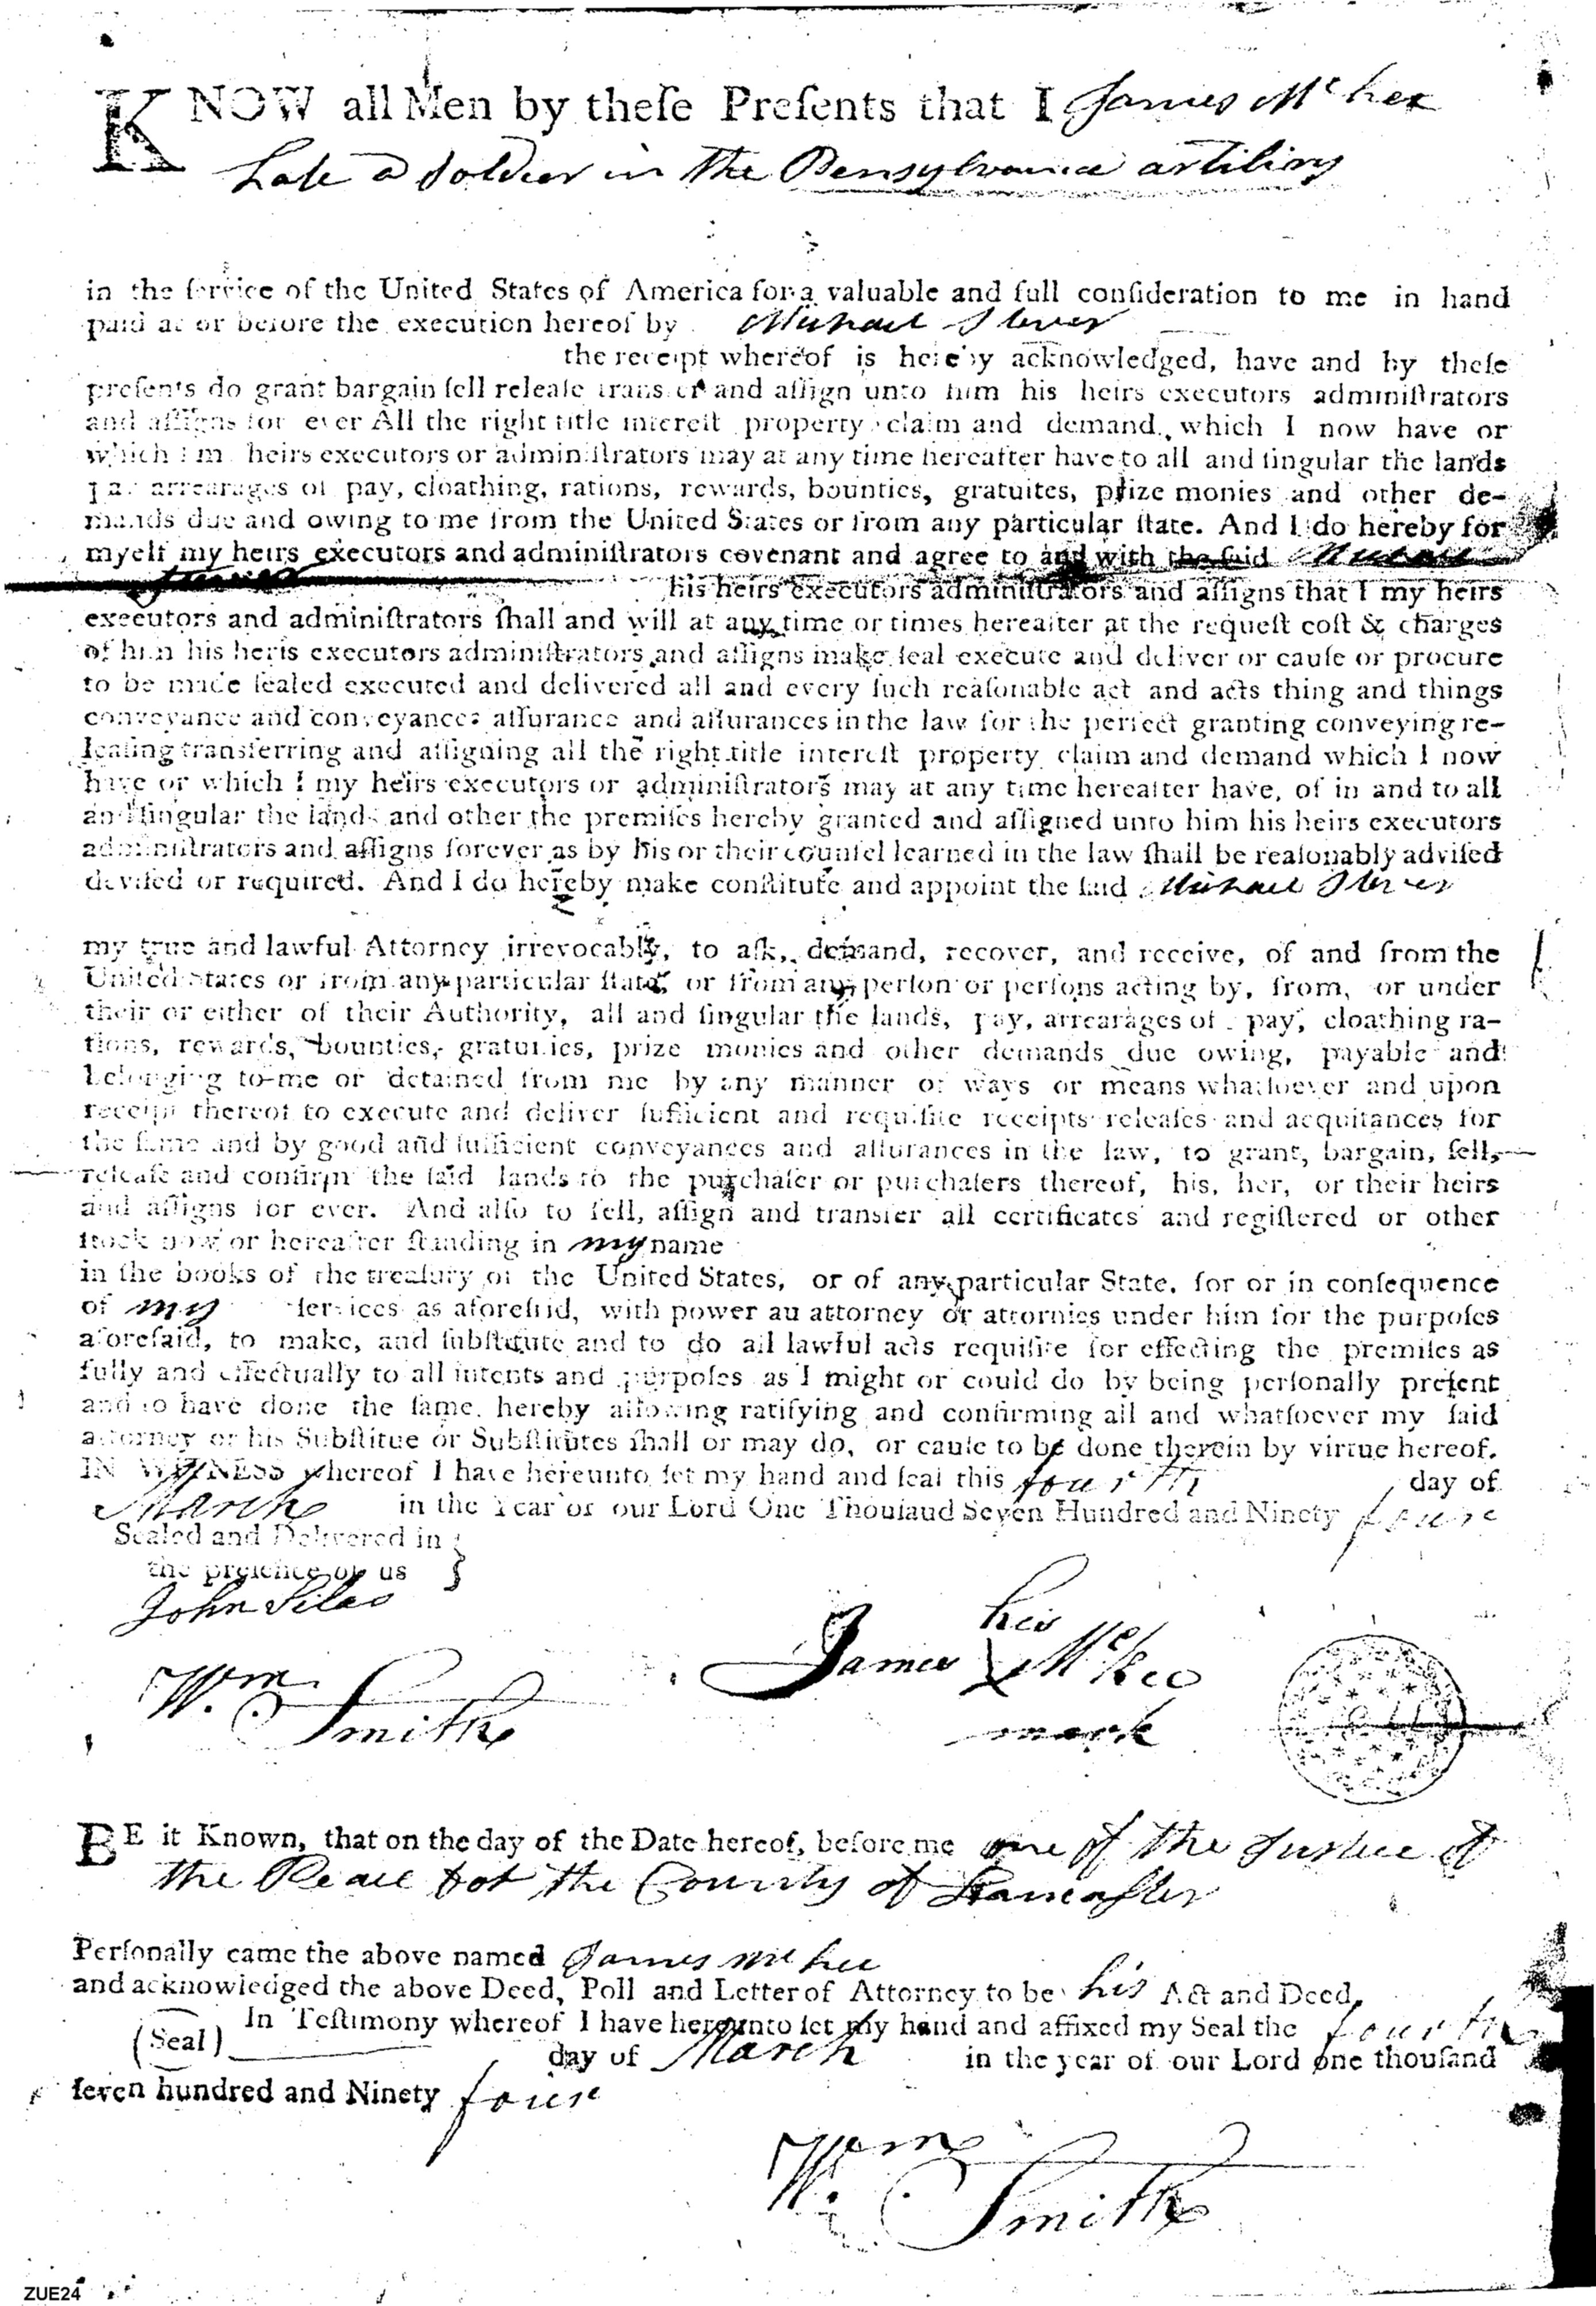 KNOW all Men by theſe Preſents that I James McKee
Late a Soldier in the Pensylvania artiliry
in the ſervice of the United States of America for a valuable and full conſideration to me in hand
paid at or before the execution hereof by Michael
the receipt whereof is hereby acknowledged, have and by theſe
preſents do grant bargain ſell releaſe transfer and aſſign unto him his heirs executors adminiſtrators
and aſſigns for ever All the right title intereſt property claim and demand, which I now have or
which I my heirs executors or adminiſtrators may at any time hereafter have to all and ſingular the lands
pay arrearages of pay, cloathing, rations, rewards, bounties, gratuites, prize monies and other de-
mands due and owing to me from the United States or from any particular ſtate. And I do hereby for
myſelf my heirs executors and adminiſtrators covenant and agree to and with the ſaid Michael
his heirs executors adminiſtrators and aſſigns that I my heirs
executors and adminiſtrators ſhall and will at any time or times hereafter at the requeſt coſt & charges
of him his heris executors adminiſtrators and aſſigns make ſeal execute and deliver or cauſe or procure
to be made ſealed executed and delivered all and every ſuch reaſonable act and acts thing and things
conveyance and conveyances aſſurance and aſſurances in the law for the perfect granting conveying re-
leaſing transferring and aſſigning all the right title intereſt property claim and demand which I now
have or which I my heirs executors or adminiſtrators may at any time hereafter have, of in and to all
and ſingular the lands and other the premiſes hereby granted and aſſigned unto him his heirs executors
adminiſtrators and aſſigns forever as by his or their counſel learned in the law ſhall be reaſonably adviſed
deviſed or required. And I do hereby make conſtitute and appoint the ſaid Michael
my true and lawful Attorney irrevocably, to aſk, demand, recover, and receive, of and from the
United States or from any particular ſtate, or from any perſon or perſons acting by, from, or under
their or either of their Authority, all and ſingular the lands, pay, arrearages of pay, cloathing ra-
tions, rewards, bounties, gratuities, prize monies and other demands due owing, payable and
belonging to me or detained from me by any manner of ways or means whatſoever and upon
receipt thereof to execute and deliver ſufficient and requiſite receipts releaſes and acquitances for
the ſame and by good and ſufficient conveyances and aſſurances in the law, to grant, bargain, ſell,
releaſe and confirm the ſaid lands to the purchaſer or purchaſers thereof, his, her, or their heirs
and aſſigns for ever. And alſo to ſell, aſſign and transfer all certificates and regiſtered or other
ſtock now or hereafter ſtanding in my name
in the books of the treaſury of the United States, or of any particular State, for or in conſequence
of my ſervices as aforeſaid, with power au attorney or attornies under him for the purpoſes
aforeſaid, to make, and ſubſtitute and to do all lawful acts requiſite for effecting the premiſes as
fully and effectually to all intents and purpoſes as I might or could do by being perſonally preſent
and to have done the ſame, hereby allowing ratifying and confirming all and whatſoever my ſaid
attorney or his Subſtitue or Subſtitutes ſhall or may do, or cauſe to be done therein by virtue hereof.
IN WITNESS whereof I have hereunto ſet my hand and ſeal this fourth day of
March in the Year of our Lord One Thouſaud Seven Hundred and Ninety foure
Sealed and Delivered in
the preſence of us
John
his
James X McKee
mark
Wm. Smith
BE it Known, that on the day of the Date hereof, before me one of the Justice of
the Peace for the County of Lancaſter
Perſonally came the above named James McKee
and acknowledged the above Deed, Poll and Letter of Attorney to be his Act and Deed.
In Teſtimony whereof I have hereunto ſet my hand and affixed my Seal the fourth
(Seal) day of March in the year of our Lord one thouſand
ſeven hundred and Ninety four
Wm. Smith
ZUE24